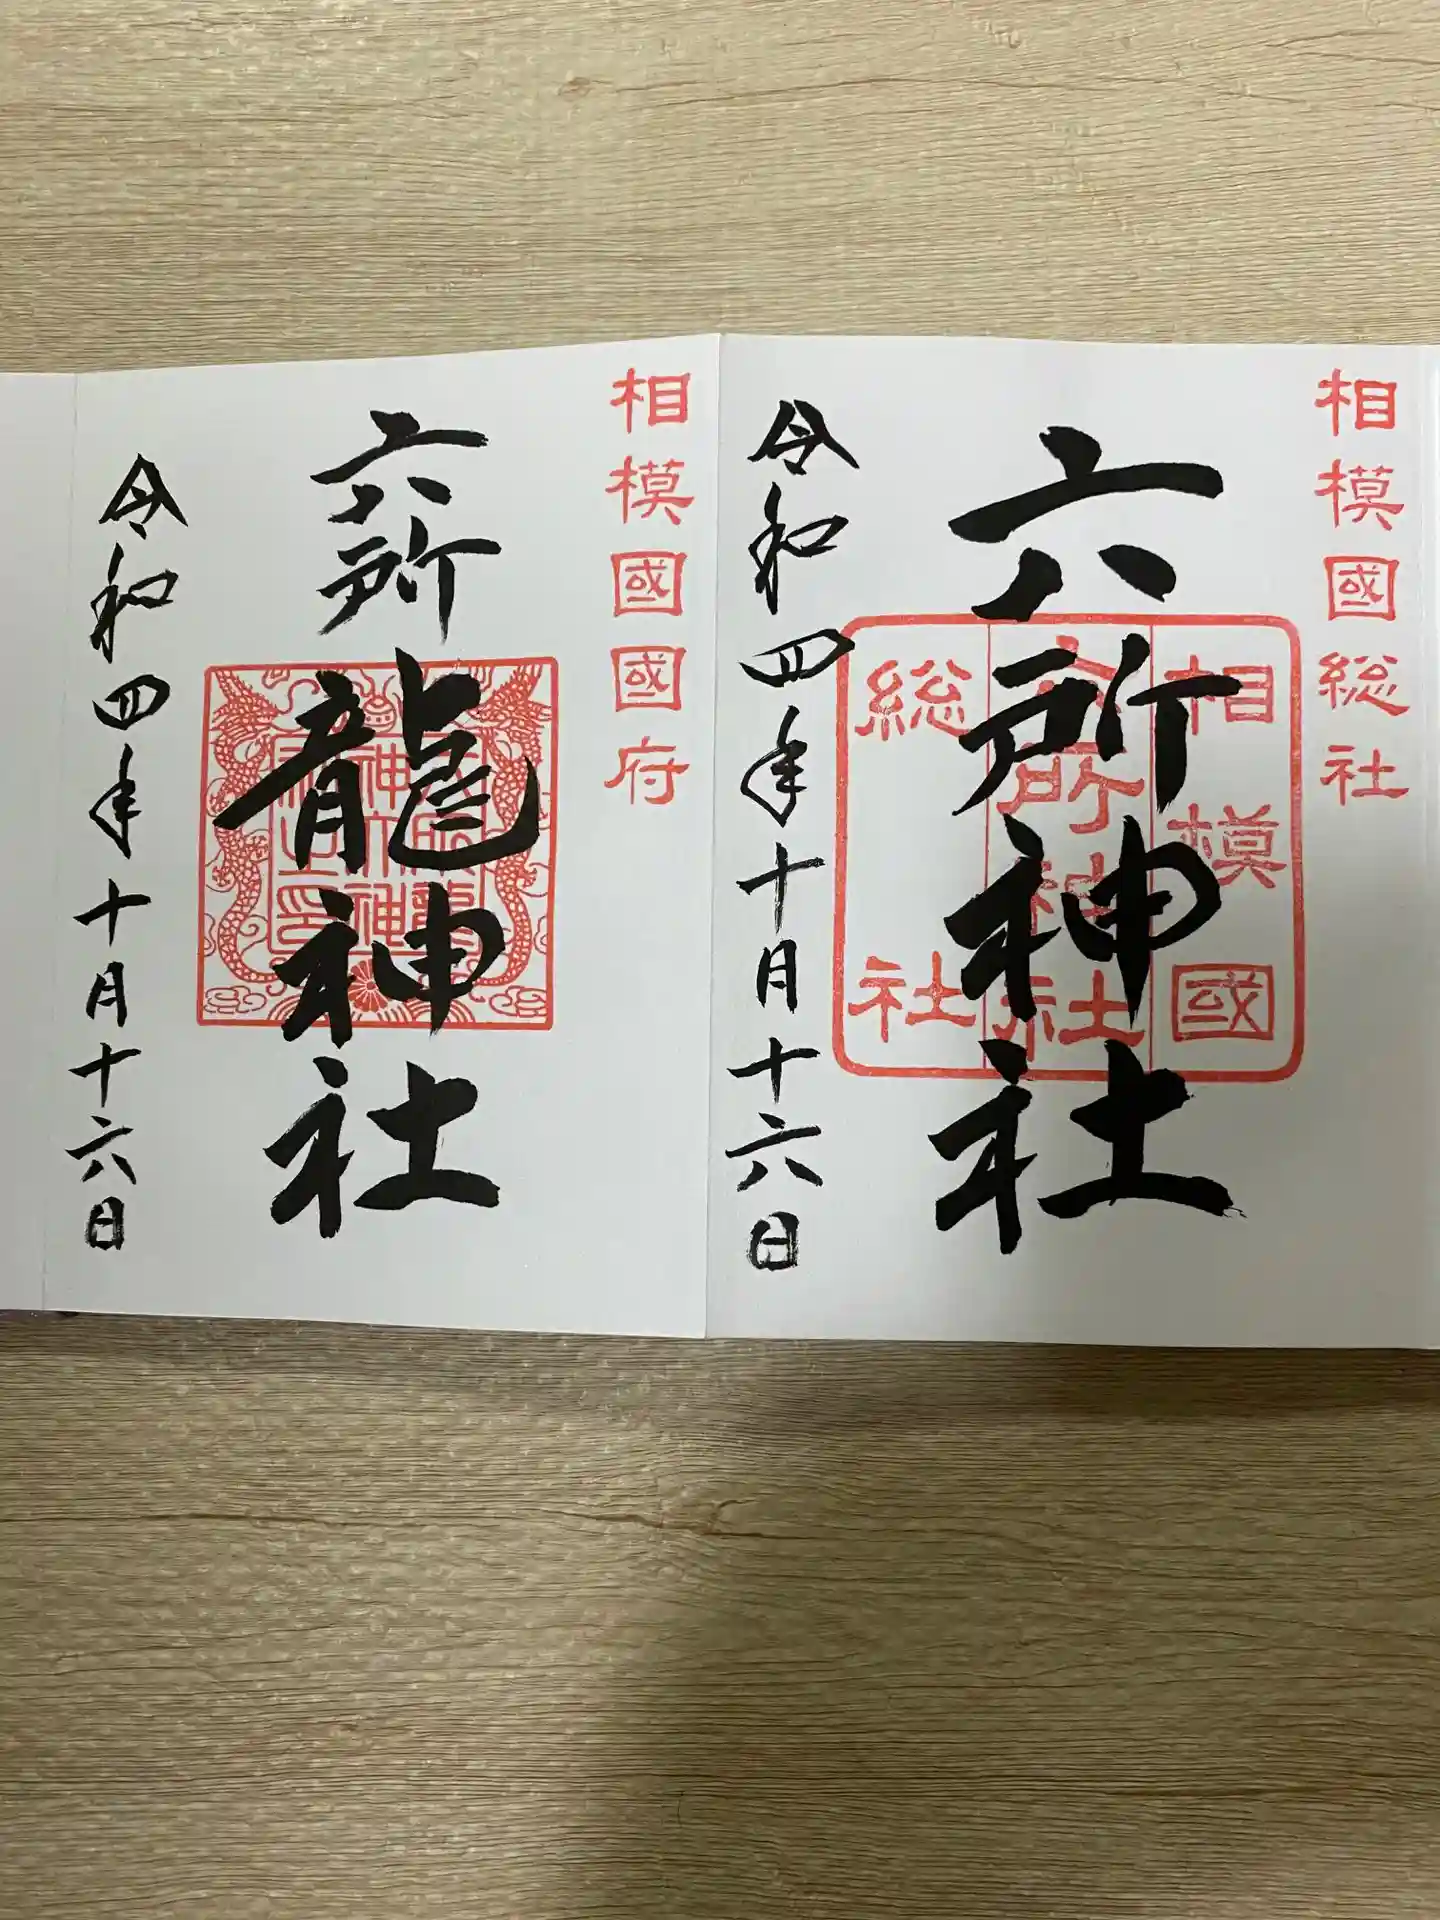 相模國総社
六所神社
相模國
六所神社
総社
令和四年十月十六日
相模國國府
六所龍神社
令和四年十月十六日